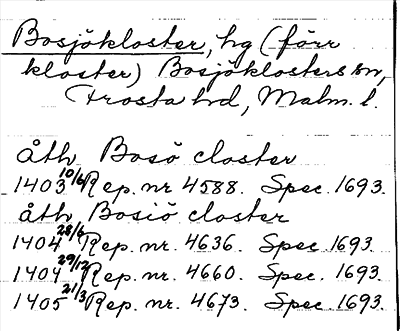 Bosjökloster, hg (förr
kloster) Bosjöklosters sn,
Frosta hd, Malm. l.
åth Bosö closter
1403 10/6 Rep. nr. 4588. Spec. 1693.
åth Bosiö closter
1404 28/6 Rep. nr. 4636. Spec. 1693.
1404 29/12 Rep. nr. 4660. Spec. 1693.
1405 21/3 Rep. nr. 4673. Spec. 1693.